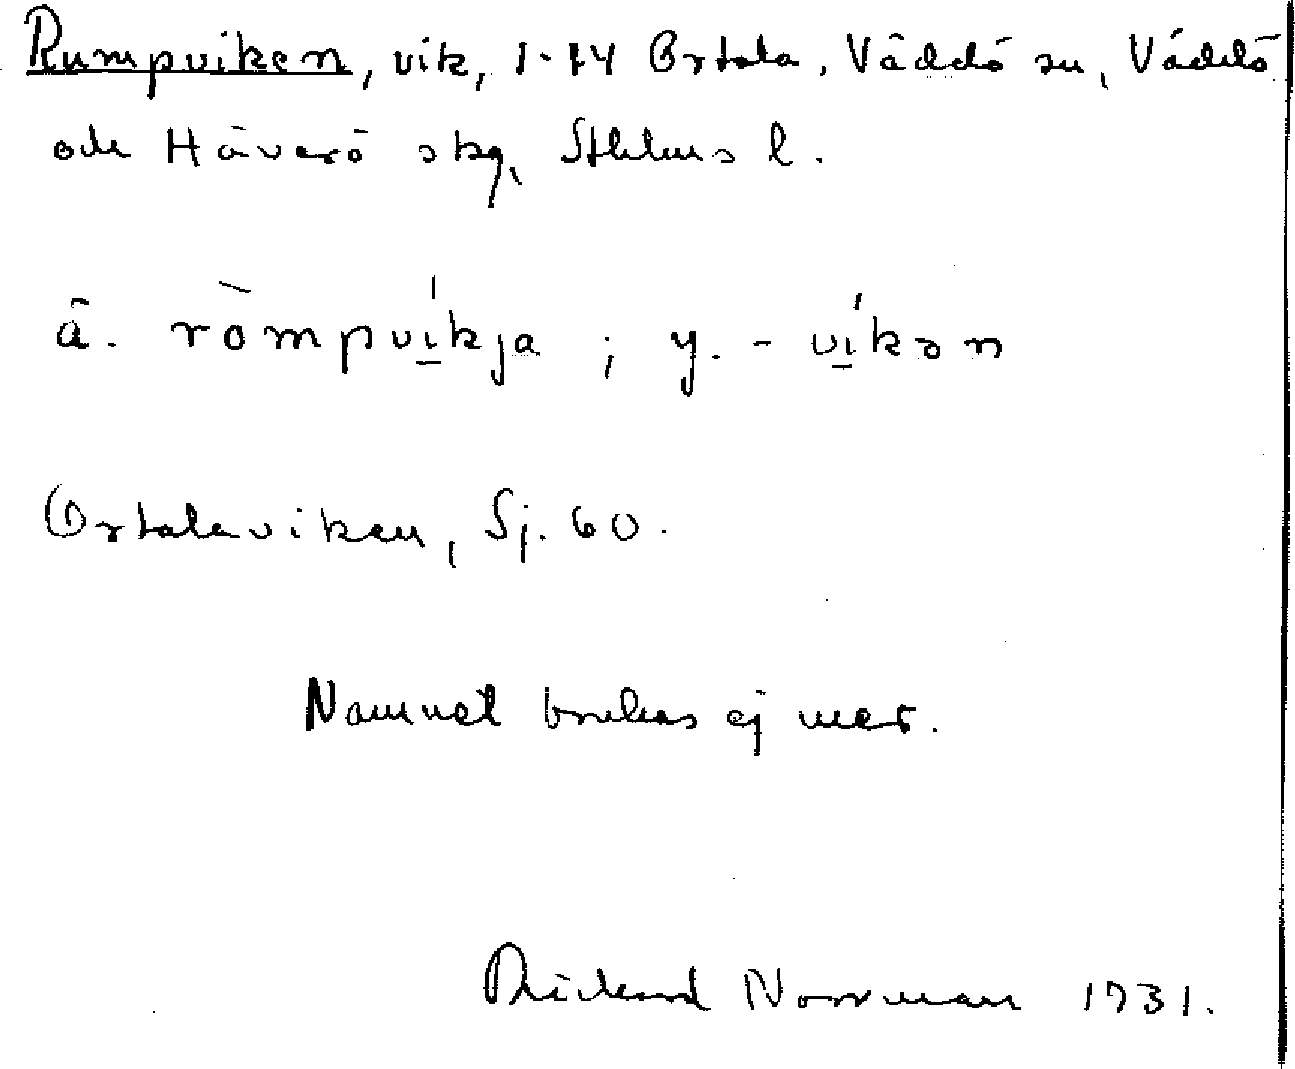 Rumpviken, vik, 1-14 Ortala, Väddö sn, Väddö
och Häverö skg, Sthlms l.
ä. ròmpvíkja ; y. - víkən
Ortalaviken, Sj. 60.
Namnet brukas ej mer.
Rickard Norrman 1931.